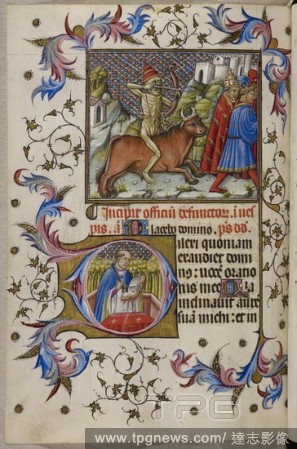 Incipit officiū defunctor. i ves
pis. a. Placebo domino. ps dd.
ilexi quoniam
exaudiet domi
nus: vocē oratio
nis mee. Quia
inclinavit aurē
suā michi: et in
TPG
www.tpgnews.com/達志影像